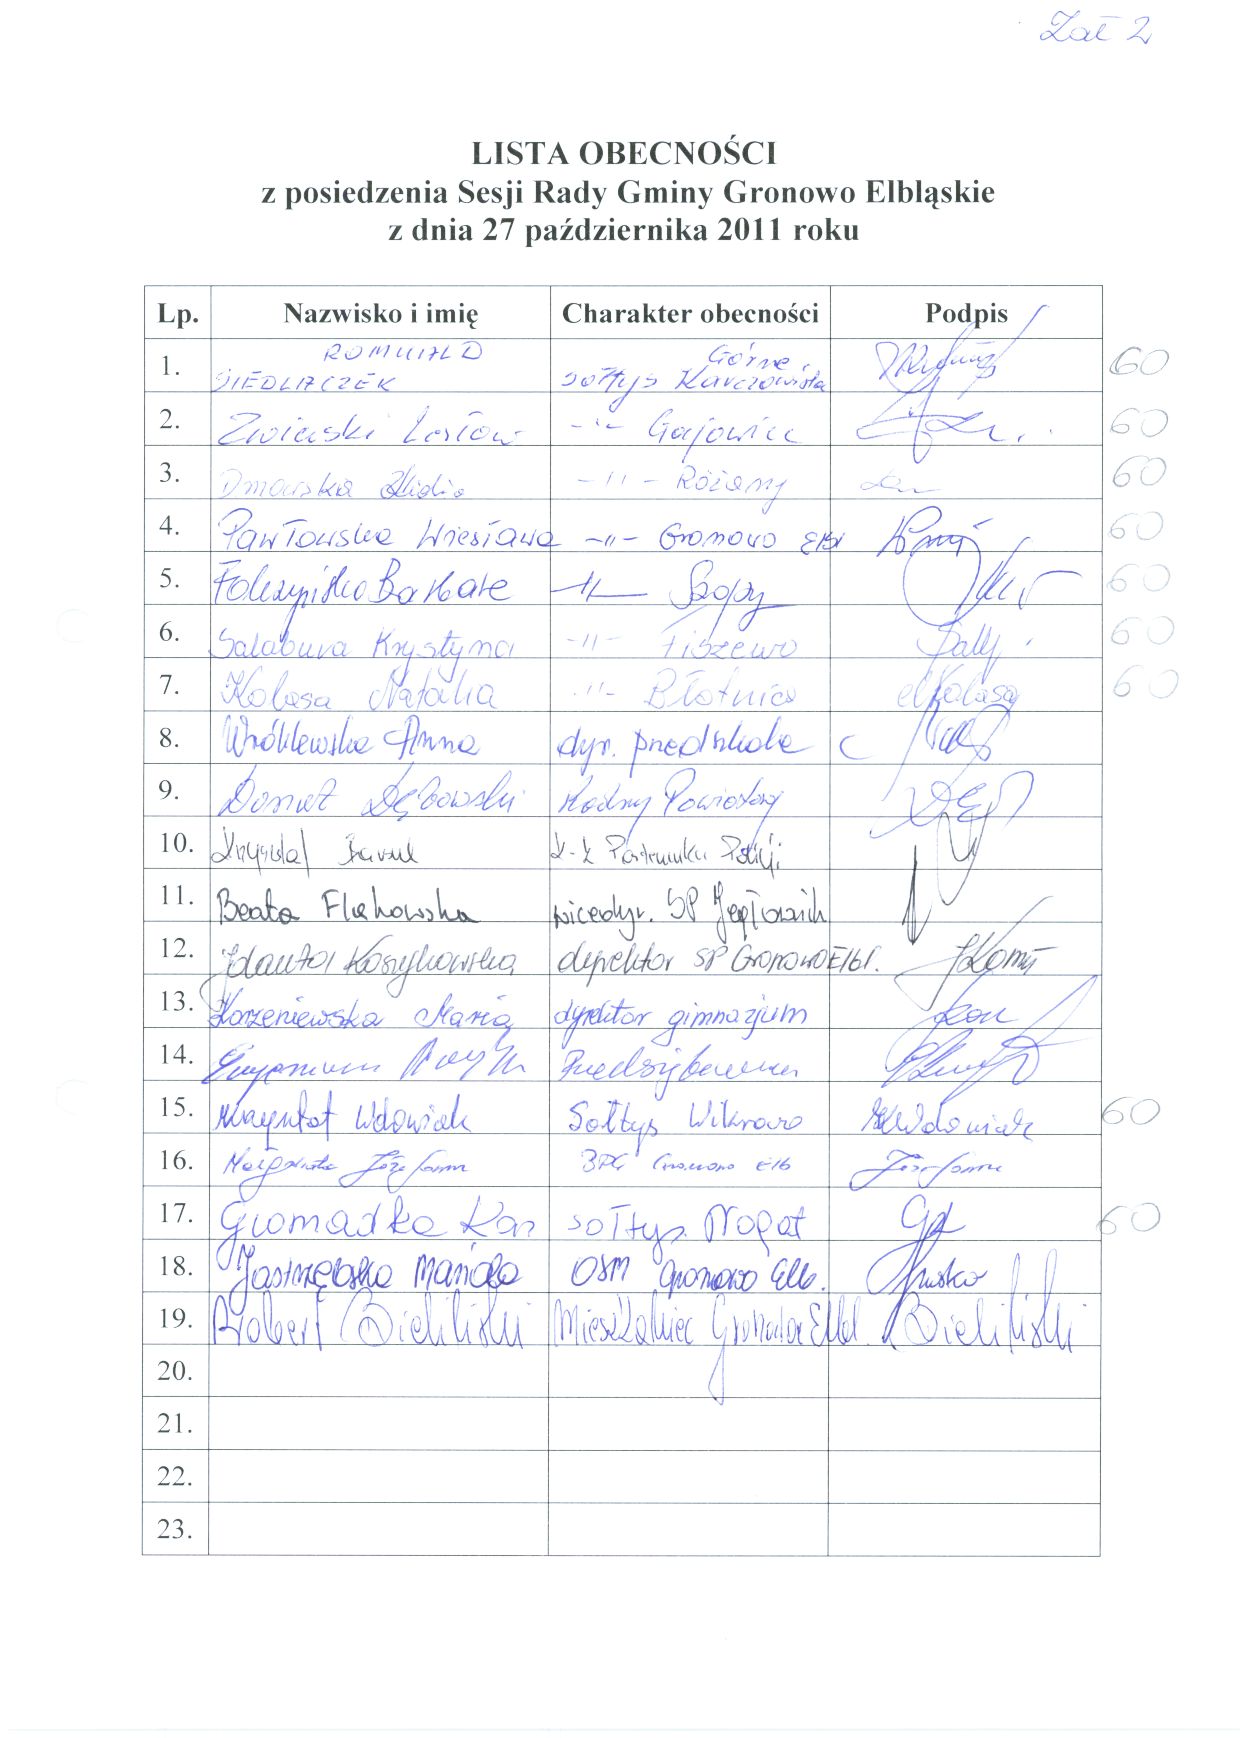 Zał 2
LISTA OBECNOŚCI
z posiedzenia Sesji Rady Gminy Gronowo Elbląskie
z dnia 27 października 2011 roku
Lp. Nazwisko i imię Charakter obecności Podpis
1. ROMUALD SIEDLACZEK sołtys Karczowiska Górne 60
2. -"- Gajowiec 60
3. -"- Różany 60
4. Pawłowska Wiesława -"- Gronowo Elbl 60
5. Barbara -"- Szopy 60
6. Salabura Krystyna -"- Fiszewo 60
7. Kolasa Natalia -"- Błotnica Kolasa 60
8. Wróblewska Anna dyr. przedszkola
9. Donat Dębowski Radny Powiatowy
10. Krzysztof K-t Posterunku Policji
11. Beata Flakowska wicedyr. SP Jegłownik
12. Danuta Koszykowska dyrektor SP Gronowo Elbl.
13. Korzeniewska Maria dyrektor gimnazjum
14. Eugeniusz
15. Krzysztof Wdowiak Sołtys Wikrowo Wdowiak 60
16. Małgorzata Gronowo Elb
17. Gromadka Kaz sołtys Nogat 60
18. Jastrzębska Mariola OSM Gronowo Elb.
19. Robert Bieliński Mieszkaniec Bieliński
20.
21.
22.
23.